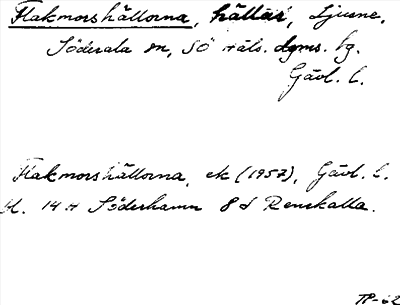 Flakmorshällorna, hällar, Ljusne,
Söderala sn, SÖ Häls. dgms. fg.
Gävl. l.
Flakmorshällorna, ek (1957), Gävl. l.
bl. 14 H Söderhamn 8 d Renskalla.
TP-62